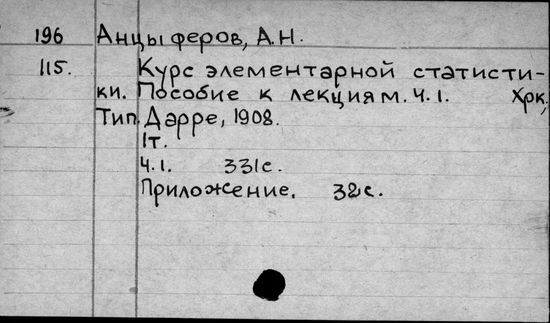 196 Анцыферов, А.Н.
115. Курс элементарной статисти-
ки. Пособие к лекциям. Ч.1. Хрк,
Тип. Дарре, 1908.
1т.
Ч.1. 331с.
Приложение. 32с.